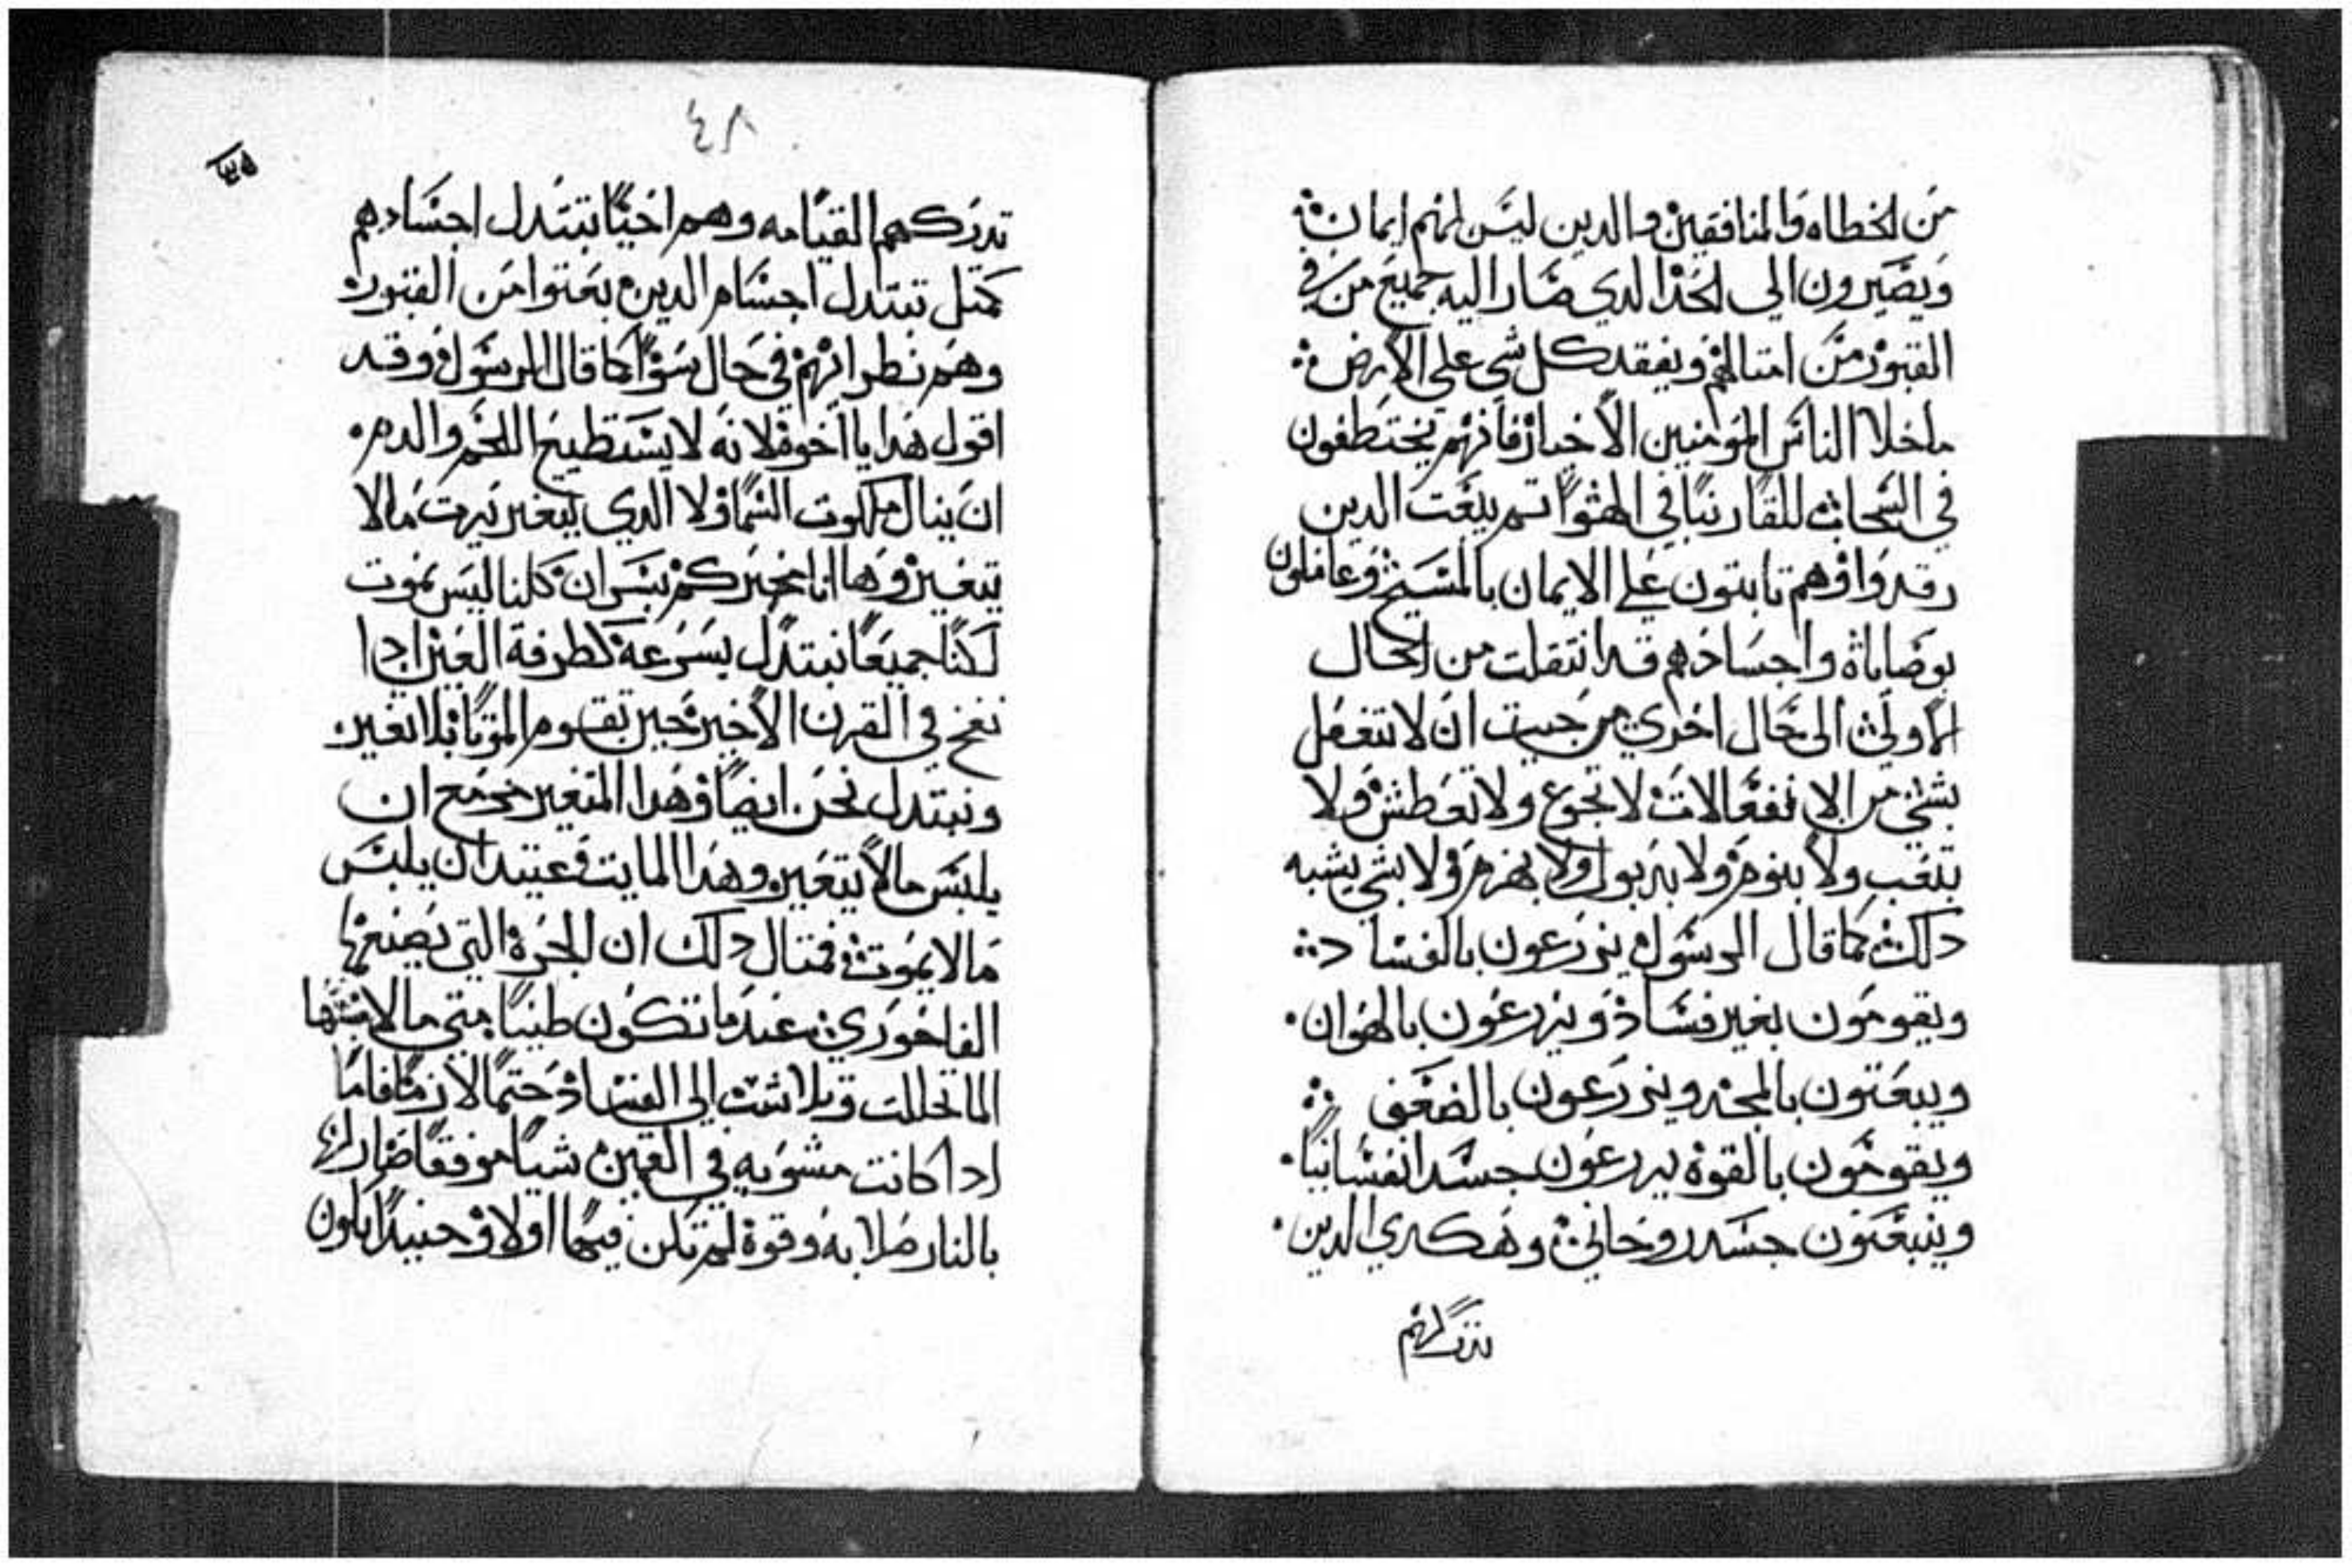 من الخطاه والمنافقين والدين ليس لهم ايمان
ويصيرون الي الحد الدي صار اليه جميع من في
القبور من امتالهم ويفقد كل شي علي الارض
ماخلا الناس المومنين الاخيار فانهم يختطفون
في السحاب للقا ربنا في الهوا تم يبعت الدين
رقدوا وهم تابتون علي الايمان بالمسيح وعاملون
بوصاياه واجسادهم قد انتقلت من الحال
الاولي الي حال اخري من حيت ان لا تنفعل
بشي من الانفعالات لا تجوع ولا تعطش ولا
تتعب ولا بنوم ولا بذبول ولا بهرم ولا بشي يشبه
دلك كما قال الرسول يزرعون بالفساد
ويقومون بغير فساد ويزرعون بالهوان
ويبعتون بالمجد ويزرعون بالضعف
ويقومون بالقوة يزرعون جسدا نفسانيا
وينبعتون جسد روحاني وهكدي الدين
تدركهم
٤٨
تدركهم القيامه وهم احيا تبتدل اجسادهم
كمتل تبتدل اجسام الدين بعتوا من القبور
وهم نطراتهم في حال سوا كما قال الرسول وقد
اقول هدا يا اخوة لانه لا يستطيع اللحم والدم
ان ينال ملكوت السما ولا الدي يتغير يرت مالا
يتغير وها انا مخبركم بسر ان كلنا ليس نموت
لكنا جميعا نبتدل بسرعة كطرفة العين ادا
نفخ في القرن الاخير حين تقوم الموتا بلا تغير
ونبتدل نحن ايضا وهدا المتغير مزمع ان
يلبس مالا يتغير وهدا المايت فعتيد ان يلبس
مالا يموت فمتال دلك ان الجرة التي يصنعها
الفاخوري عندما تكون طينا متي ما لامسها
الما تحللت وتلاشت الي الفساد حتما لازما فاما
ادا كانت مشويه في القمين شيا موفقا صار لها
بالنار صلابه وقوة لم تكن فيها اولا وحينيدا يكون